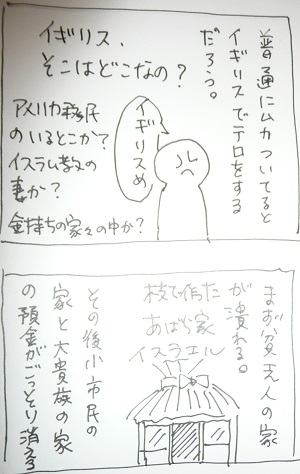 普通にムカついてると
イギリスでテロをする
だろう。
イギリス、
そこはどこなの？
イギリスめ
アメリカ移民
のいるとこか？
イスラム教の
妻か？
金持ちの家々の中か？
まず貧乏人の家
が潰れる。
枝で作った
あばら家
イスラエル
その後小市民の
家と大貴族の家
の預金がごっそり消える